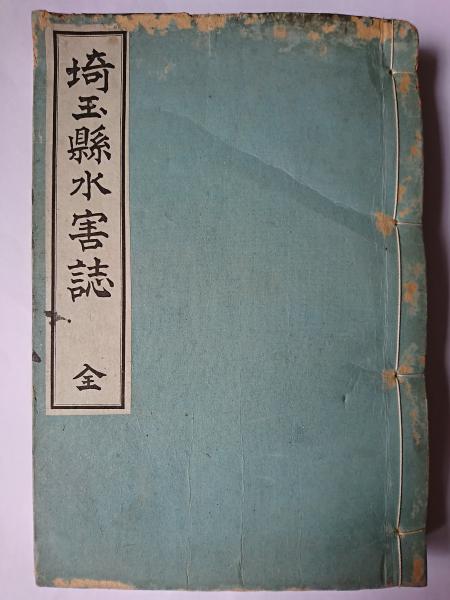 埼玉縣水害誌
全